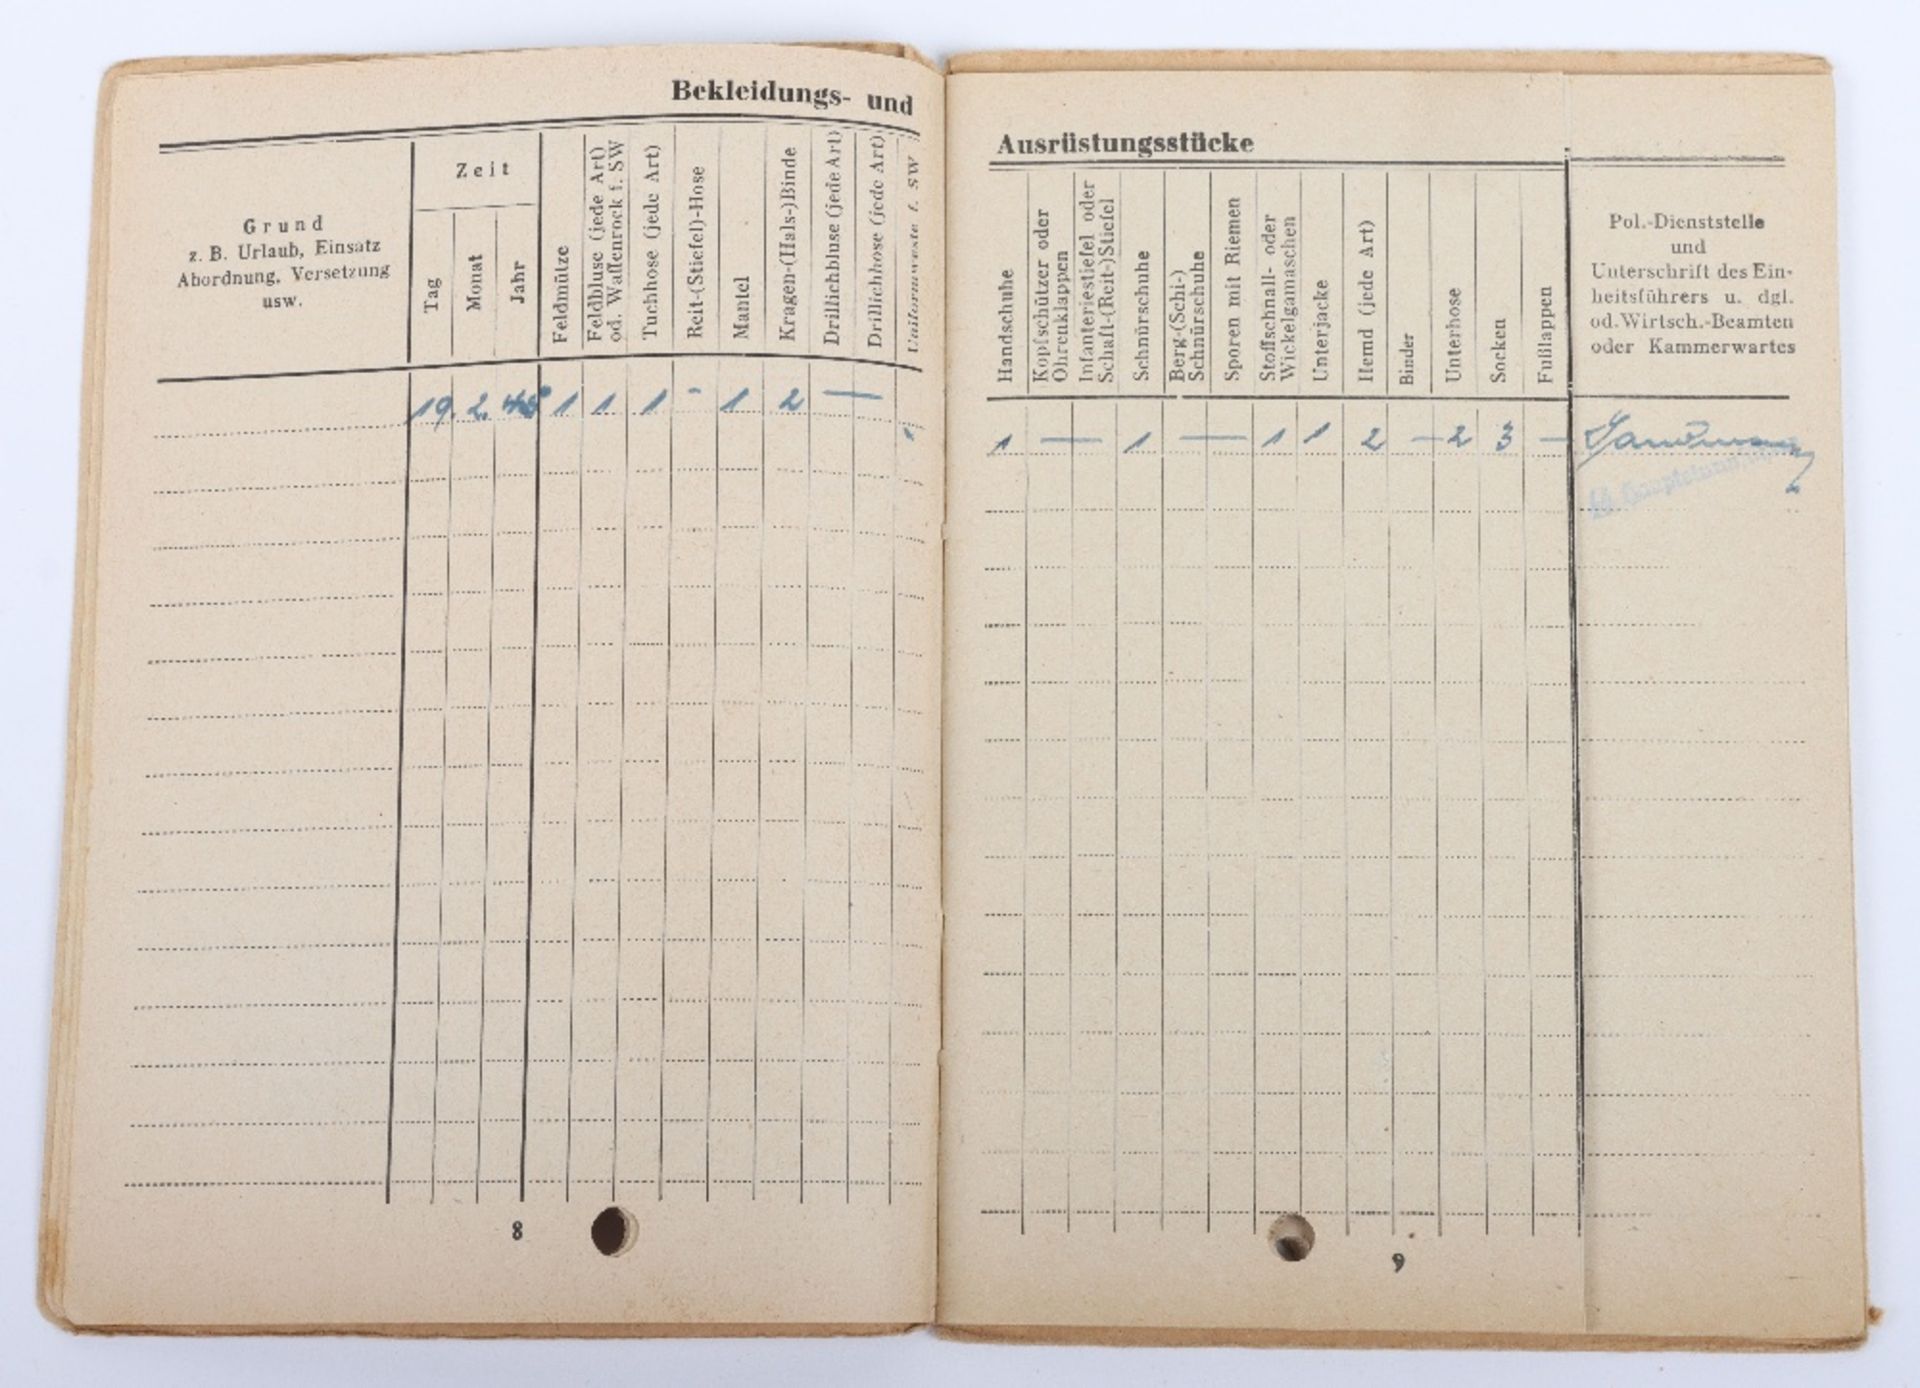 Bekleidungs- und
Grund
z. B. Urlaub, Einsatz
Abordnung, Versetzung
usw.
Zeit
Tag
Monat
Jahr
Feldmütze
Feldbluse (jede Art)
od. Waffenrock f. SW
Tuchhose (jede Art)
Reit-(Stiefel)-Hose
Mantel
Kragen-(Hals-)Binde
Drillichbluse (jede Art)
Drillichhose (jede Art)
Uniformweste f. SW
19. 2. 1 1 1 - 1 2 —
8
Ausrüstungsstücke
Handschuhe
Kopfschützer oder
Ohrenklappen
Infanteriestiefel oder
Schaft-(Reit-)Stiefel
Schnürschuhe
Berg-(Schi-)
Schnürschuhe
Sporen mit Riemen
Stoffschnall- oder
Wickelgamaschen
Unterjacke
Hemd (jede Art)
Binder
Unterhose
Socken
Fußlappen
Pol.-Dienststelle
und
Unterschrift des Ein-
heitsführers u. dgl.
od. Wirtsch.-Beamten
oder Kammerwartes
1 — 1 — 1 1 2 — 2 3 —
9